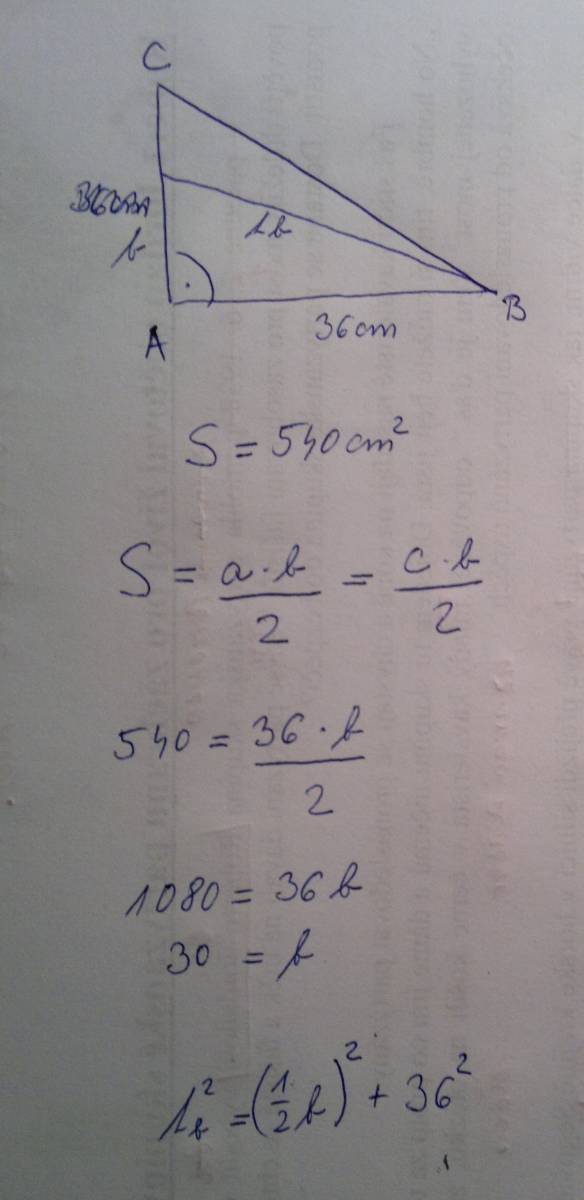 C
b
t_b
A
B
36cm
S = 540 cm²
S = a·b/2 = c·b/2
540 = 36·b/2
1080 = 36b
30 = b
t_b² = (1/2 b)² + 36²